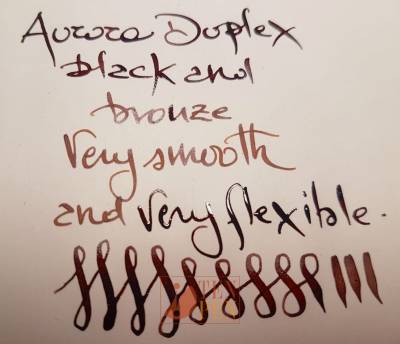 Aurora Duplex
black and
bronze
Very smooth
and very flexible.